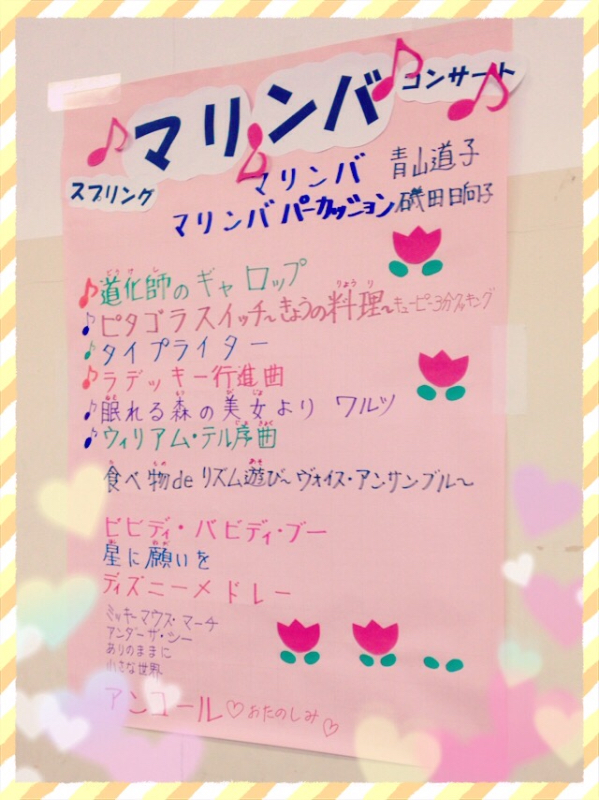 マリンバ コンサート
スプリング
マリンバ 青山道子
マリンバ パーカッション 磯田日向子
道化師のギャロップ
ピタゴラスイッチ〜きょうの料理〜キューピー3分クッキング
タイプライター
ラデッキー行進曲
眠れる森の美女より ワルツ
ウィリアム・テル序曲
食べ物de リズム遊び〜ヴォイス・アンサンブル〜
ビビディ・バビディ・ブー
星に願いを
ディズニーメドレー
ミッキーマウス・マーチ
アンダーザ・シー
ありのままに
小さな世界
アンコール♡おたのしみ♡